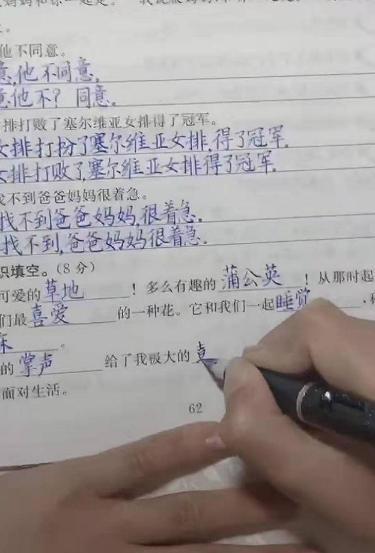 他不同意。
意,他不同意。
意他不? 同意。
排打败了塞尔维亚女排得了冠军。
女排打扮了塞尔维亚女排,得了冠军.
女排打败了塞尔维亚女排得了冠军.
找不到爸爸妈妈很着急。
找不到爸爸妈妈,很着急.
找不到,爸爸妈妈很着急.
识填空。(8分)
可爱的草地!多么有趣的蒲公英!从那时起
们最喜爱的一种花。它和我们一起睡觉,
床。
的掌声给了我极大的
面对生活。
62